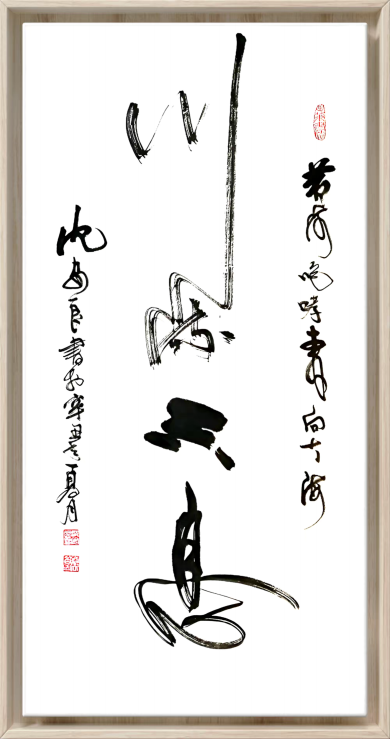 黄河咆哮奔向大海
川流不息
沈良書於辛丑夏月